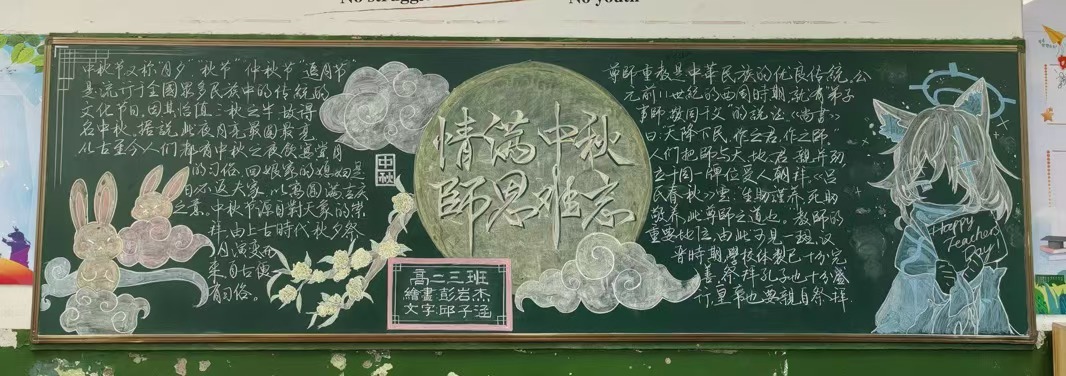 No
No youth
中秋节又称“月夕”“秋节”“仲秋节”“追月节”
是流行于全國衆多民族中的传統的
文化节日,因其恰值三秋之半,故得
名中秋。據説此夜月亮最圆最亮
從古至今人们都有中秋之夜飲宴賞月
的习俗。回娘家的媳妇是
日必返夫家,以寓圆满吉庆
之意。中秋节源自對天象的崇
拜,由上古時代秋夕祭
月演变而
来自古便
有习俗。
中秋
情满中秋
師恩难忘
高二三班
繪畫:彭岩杰
文字:邱子涵
尊師重教是中華民族的优良传统,公
元前11世紀的西周时期,就有“弟子
事師,敬同于父”的說法。《尚書》
曰:“天降下民,作之君,作之師”
人们把師与天、地、君、親并列
立于同一牌位受人朝拜。《吕
氏春秋》里“生则謹养,死则
敬养,此尊師之道也。教師的
重要地位,由此可见一斑。汉
晋時期學校体製已十分完
善,祭拜孔子也十分盛
行,皇帝也要親自祭拜
Happy
Teachers'
Day!